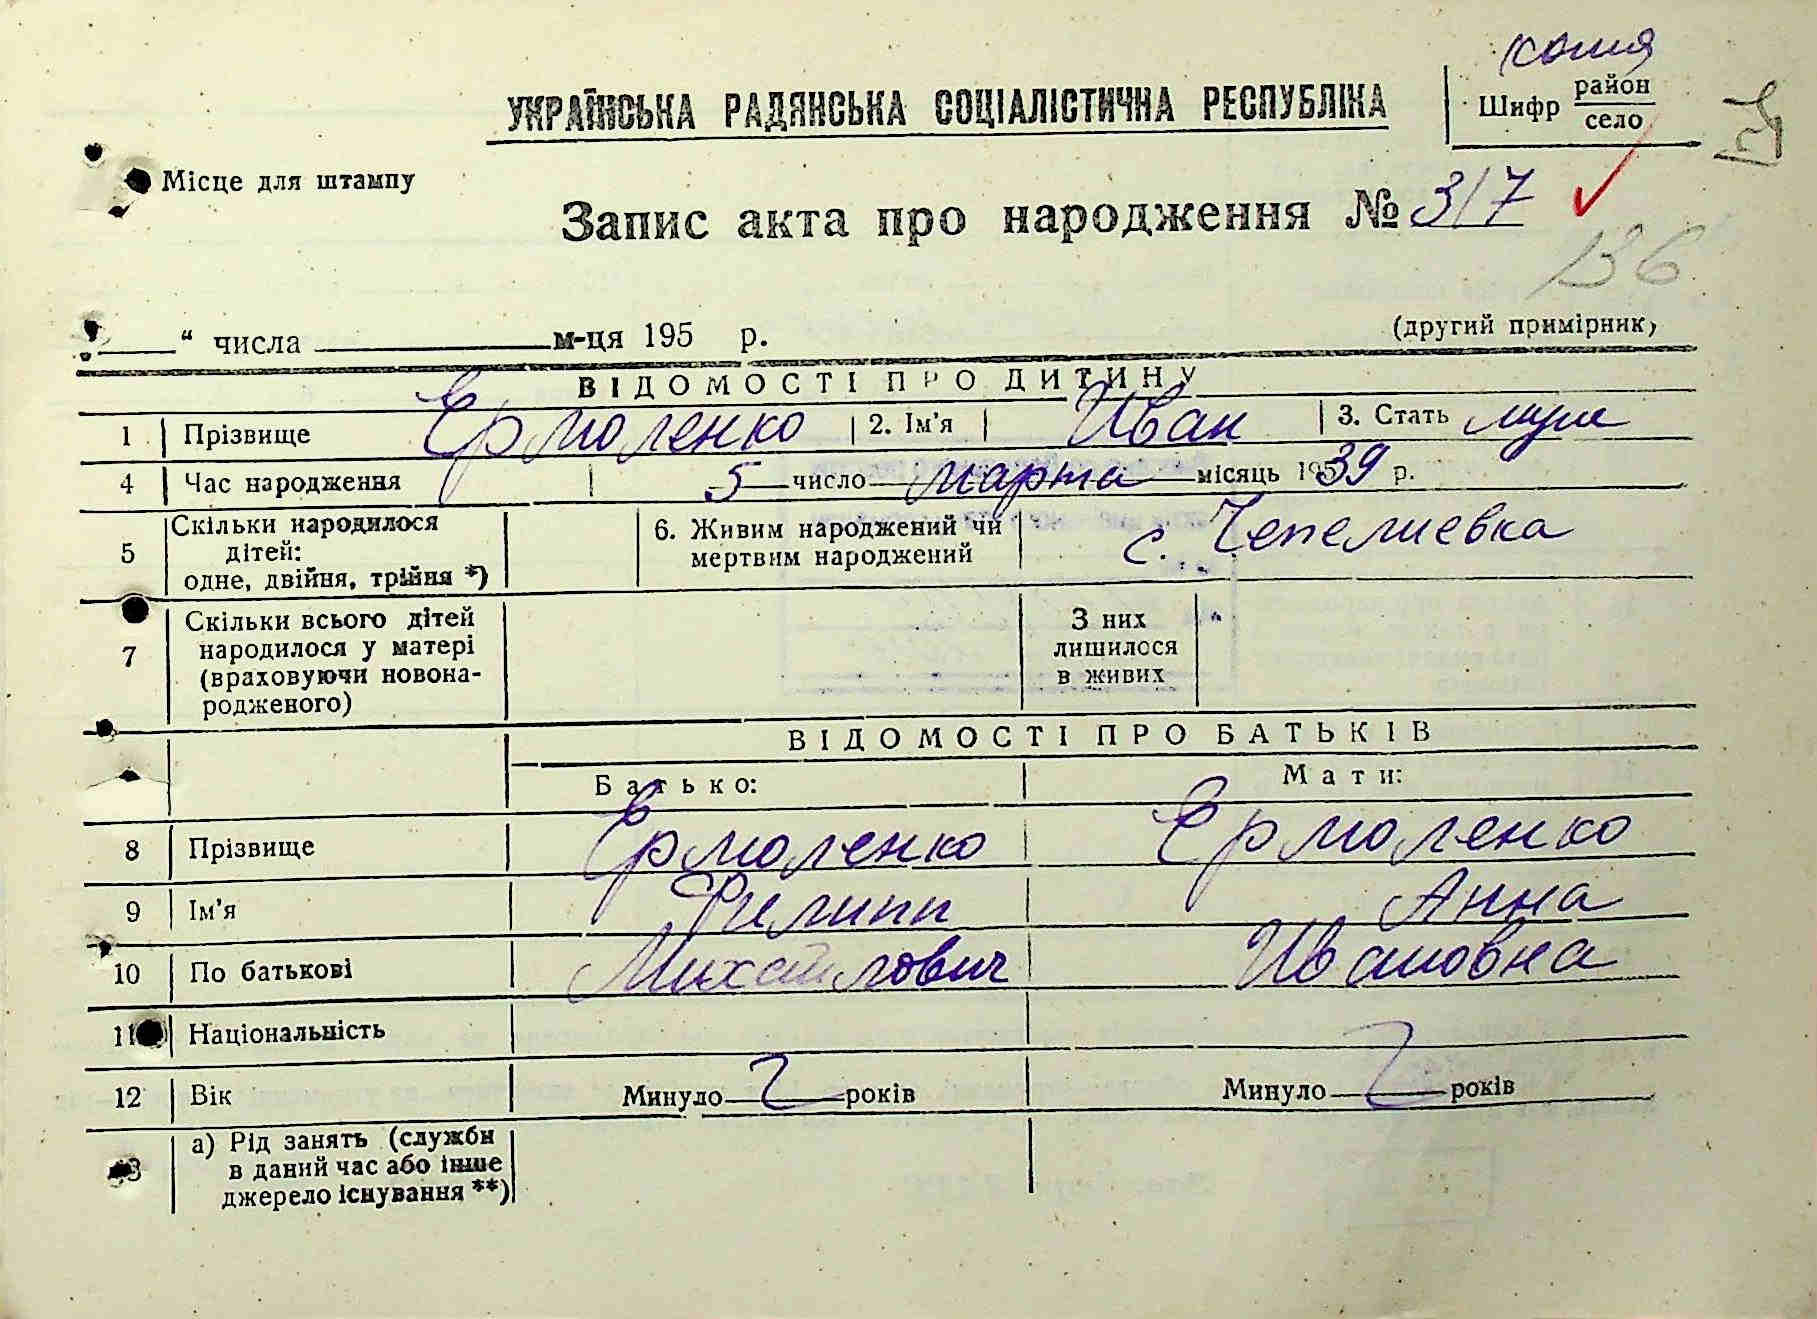 копия
УКРАЇНСЬКА РАДЯНСЬКА СОЦІАЛІСТИЧНА РЕСПУБЛІКА
Шифр район село
Місце для штампу
Запис акта про народження № 317
136
“ числа м-ця 195 р.
(другий примірник)
ВІДОМОСТІ ПРО ДИТИНУ
1 Прізвище Ермоленко 2. Ім'я Иван 3. Стать муж
4 Час народження 5 число марта місяць 1939 р.
5 Скільки народилося
дітей:
одне, двійня, трійня *)
6. Живим народжений чи
мертвим народжений
с. Чепелиевка
7 Скільки всього дітей
народилося у матері
(враховуючи новона-
родженого)
З них
лишилося
в живих
ВІДОМОСТІ ПРО БАТЬКІВ
Батько: Мати:
8 Прізвище Ермоленко Ермоленко
9 Ім'я Филипп Анна
10 По батькові Михайлович Ивановна
11 Національність
12 Вік Минуло років Минуло років
13 а) Рід занять (служби
в даний час або інше
джерело існування **)